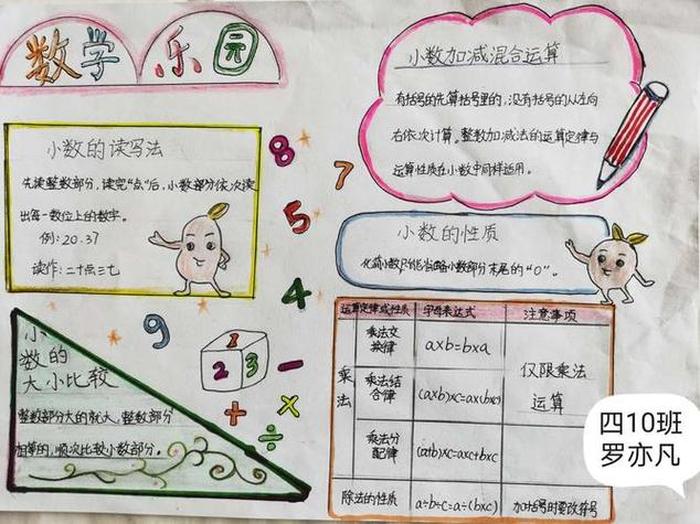 数学乐园
小数的读写法
先读整数部分,读完“点”后,小数部分依次读
出每一数位上的数字。
例:20.37
读作:二十点三七
小
数的
大小比较
整数部分大的就大,整数部分
相等的,顺次比较小数部分。
8
7
5
4
9
1
2 3
−
+
×
÷
小数加减混合运算
有括号的先算括号里的,没有括号的从左向
右依次计算。整数加减法的运算定律与
运算性质在小数中同样适用。
小数的性质
化简小数只能省略小数部分末尾的“0”。
运算定律或性质 字母表达式 注意事项
乘法
乘法交换律 a×b=b×a
乘法结合律 (a×b)×c=a×(b×c)
仅限乘法
运算
乘法分配律 (a+b)×c=a×c+b×c
除法的性质 a÷b÷c=a÷(b×c) 加括号时要改符号
四10班
罗亦凡